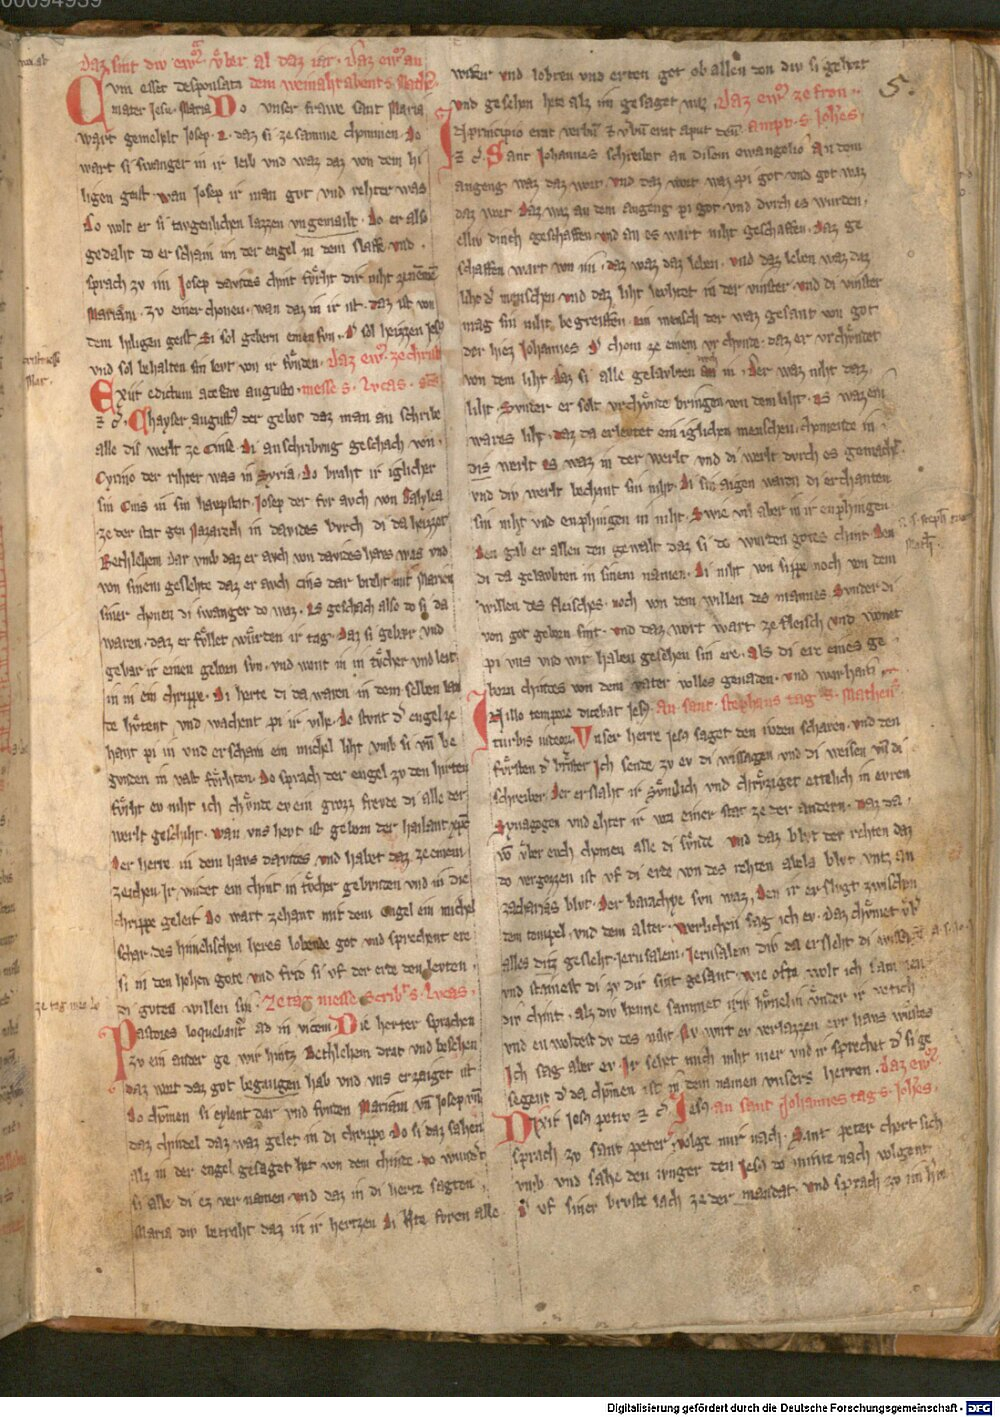 00094939
daz sint div ewͣ vͤber al daz iar. Daz ewͣ an
Cvm esset desponsata dem weinahtabent s. Mathe
mater Jesu Maria Do vnser frawe sant Maria
wart gemehelt Josep. daz si ze samme chommen. do
wart si swanger in ir leib vnd waz daz von dem hi
ligen geist. wan Josep ir man gut vnd rehter was
do wolt er si taugenlichen lazzen vngemailt. do er also
gedaht do er schain im der engel in dem slaffe vnd
sprach zv im Josep dauides chint fvͤrht dir niht zenemē
Mariam. zv einer chonen. wan daz in ir ist. daz ist von
dem hiligen geist. Si sol gebern einen svn. Dˢ sol heizzen Jesus
vnd sol behalten sin levt von ir svnden. daz ewͣ. ze christ
Exiit edictum a cesare augusto. messe s. Lucas.
Chayser august' der gebot daz man an schribe
alle dis werlt ze Cinse. di anschribung geschach von
Cyrino der rihter was in Syria. do braht ir iglicher
sin Cins in sin haupstat. Josep der fvr auch von Galylea
ze der stat gen Nazareth in dauides burch di da heizzet
Bethlehem dar vmb daz er auch von dauides haus was vnd
von sinem geslehte daz er auch cins dar breht mit Marien
siner chonen di swanger do waz. Ez geschach also do si da
waren. daz er fvllet wurden ir tag. daz si gebar vnd
gebar ir einen geborn svn. vnd wont in in tvͤcher vnd leit
in in ein chrippe. Di herte di da waren in dem selben lan
de hvͤtent vnd wachent pi ir vihe. do stvnt dˢ engel ze
haut pi in vnd er scham ein michel liht vmb si vn̄ be
gvnden in vast fvͤrhten. do sprach der engel zv den hirten
fvͤrht ev niht ich chvͤnde ev ein grozz frevde di alle der
werlt geschiht. wan vns hevt ist geborn der hailant xp̄c
der herre in dem haus dauides. vnd habet daz ze einem
zeichen. Jr vindet ein chint in tvͤcher gebvnden vnd in die
chrippe geleit. do wart zehant mit dem engel ein michel
schar. des himelischen heres lobende got vnd sprechent ere
si in den hohen gote vnd frid si vf der erde den levten
di gutes willen sin. Ze tag messe scribt s. Lucas.
Pastores loquebant' ad in vicem Die herter sprachen
zv ein ander ge wir hintz Bethlehem drat vnd besehen
daz wort daz got begangen hab vnd vns erzaiget ist
do chomen si eylent dar vnd fvnden Mariam vn̄ Josep vn̄
daz chindel daz waz gelet in di chrippe. do si daz sahen
alz in der engel gesaget het von dem chinde. do wundˢt
si alle di ez vernamen. vnd daz in di herte sagten
Maria div betraht daz in ir hertzen di herte fvren alle
wider vnd lobten vnd erten got ob allen den div si gehort
vnd gesehen hete alz im gesaget waz. Daz ewͣ ze fron
In principio erat verbū et vˢbū erat aput deū. ampt. s. Johēs
Sant Johannes schreibet an disem ewangelio an dem
angeng waz daz wort vnd daz wort waz pi got vnd got waz
daz wort daz waz an dem angeng pi got vnd durch es wurden
elliv dinch geschaffen vnd an es wart niht geschaffen. daz ge
schaffen wart von im. daz waz daz leben. vnd daz leben waz daz
liht dˢ menschen vnd daz liht levhtet in der vinster. vnd di vinster
mag sin niht begreiffen. ein mensch der waz gesant von got
der hiez Johannes dˢ chom ze einem vrchvnde. daz er vrchvndet
von dem liht. daz si alle gelaubten an in. der waz niht daz
liht. Svnder er solt vrchvnde bringen von dem liht. es waz ein
wares liht. daz da erlevhtet ein iglichen menschen. chomende in
dis werlt es waz in der werlt vnd di werlt dvrch es gemacht
vnd div werlt bechant sin niht. di sin aigen waren di erchanten
sin niht vnd enphingen in niht. Swie vil aber in ir enphingen
den gab er allen den gewalt daz si do wurden gotes chint. den
di da gelaubten in sinem namen. di niht von sippe noch von dem
willen des fleisches. noch von dem willen des mannes. Svnder di
von got geborn sint. vnd daz wort wart ze fleisch vnd wonet
pi vns vnd wir haben gesehen sin ere. als di ere eines ge
born chindes von dem vater volles genaden. vnd warhait.
In illo tempore dicebat Jesꝰ An sant Stephans tag s. Matheus
turbis iudeorꝫ Vnser herre Jesus saget den ivden scharen. vnd den
fvͤrsten dˢ briester Ich sende zv ev di wissagen vnd di weisen vn̄ di
schreiber. der erslaht ir svͤmlich vnd chrvͤziget etteslich in evren
Synagogen vnd ehtet ir von einer stat ze der andern. daz da
von vͤber euch chomen alle di svnde vnd daz blvt der rehten daz
do vergozzen ist vf di erde von des rehten abels blvt vntz an
zacharias blvt. der barachye svn waz. den ir ersluget zwischen
dem tempel. vnd dem alter. werlichen sag ich ev. daz chvmet vbˢ
alles ditz gesleht. Jerusalem. Jerusalem div da ersleht di wissagen
vnd stainest di zv dir sint gesant. wie ofte wolt ich samnen
dir chint. alz div henne sammet iriv hvnelin vnder ir vetich
vnd en woldest dv des niht. Nv wirt ev verlazzen evr haus wustes
Ich sag aber ev. Jr sehet mich niht mer vnd ir sprechet dˢ si ge
segent dˢ da chvmen ist in dem namen vnsers herren. daz ewͣ
Dixit Jesꝰ petro et cͣ. Jesꝰ an sant Johannes tag s. Johēs
sprach zv sant peter. volge mir nach. Sant peter chort sich
vmb vnd sahe den ivnger den Jesꝰ do minte nach volgent
dˢ vf siner brvste lach ze der mandat vnd sprach zv im hˢre
5.
Digitalisierung gefördert durch die Deutsche Forschungsgemeinschaft - DFG